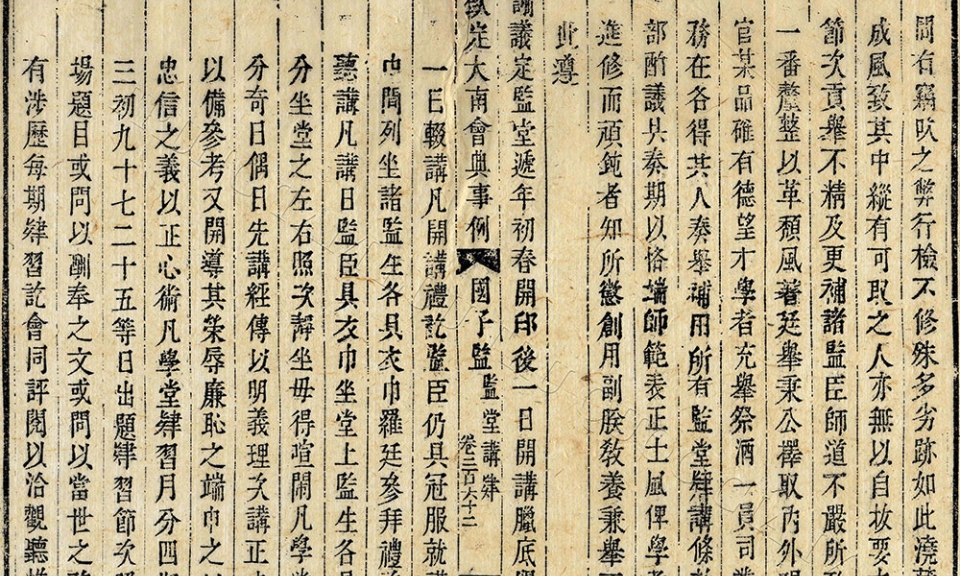 間有竊吹之弊行檢不修殊多劣跡如此澆
成風致其中縱有可取之人亦無以自拔要
節次貢舉不精及更補諸監臣師道不嚴所
一番釐整以革頹風著廷舉秉公擇取內外
官某品確有德望才學者充舉祭酒一員司
務在各得其人奏舉補用所有監堂肄講條
部酌議具奏期以恪端師範表正士風俾學
進修而頑鈍者知所懲創用副朕教養兼舉
此遵
議定監堂遞年初春開印後一日開講臘底
欽定大南會典事例 國子監 監堂講肄 卷二百六十二
一日輟講凡開講禮訖監臣仍具冠服就
巾間列坐諸監生各具衣巾羅廷參拜禮
聽講凡講日監臣具衣巾坐堂上監生各
分坐堂之左右照次辭坐毋得喧鬧凡學
分奇日偶日先講經傳以明義理次講正
以備參考又開導其榮辱廉恥之端巾之
忠信之義以正心術凡學堂肄習月分四
三初九十七二十五等日出題肄習節次
場題目或問以酬奉之文或問以當世之
有涉歷每期肄習訖會同評閱以洽觀聽